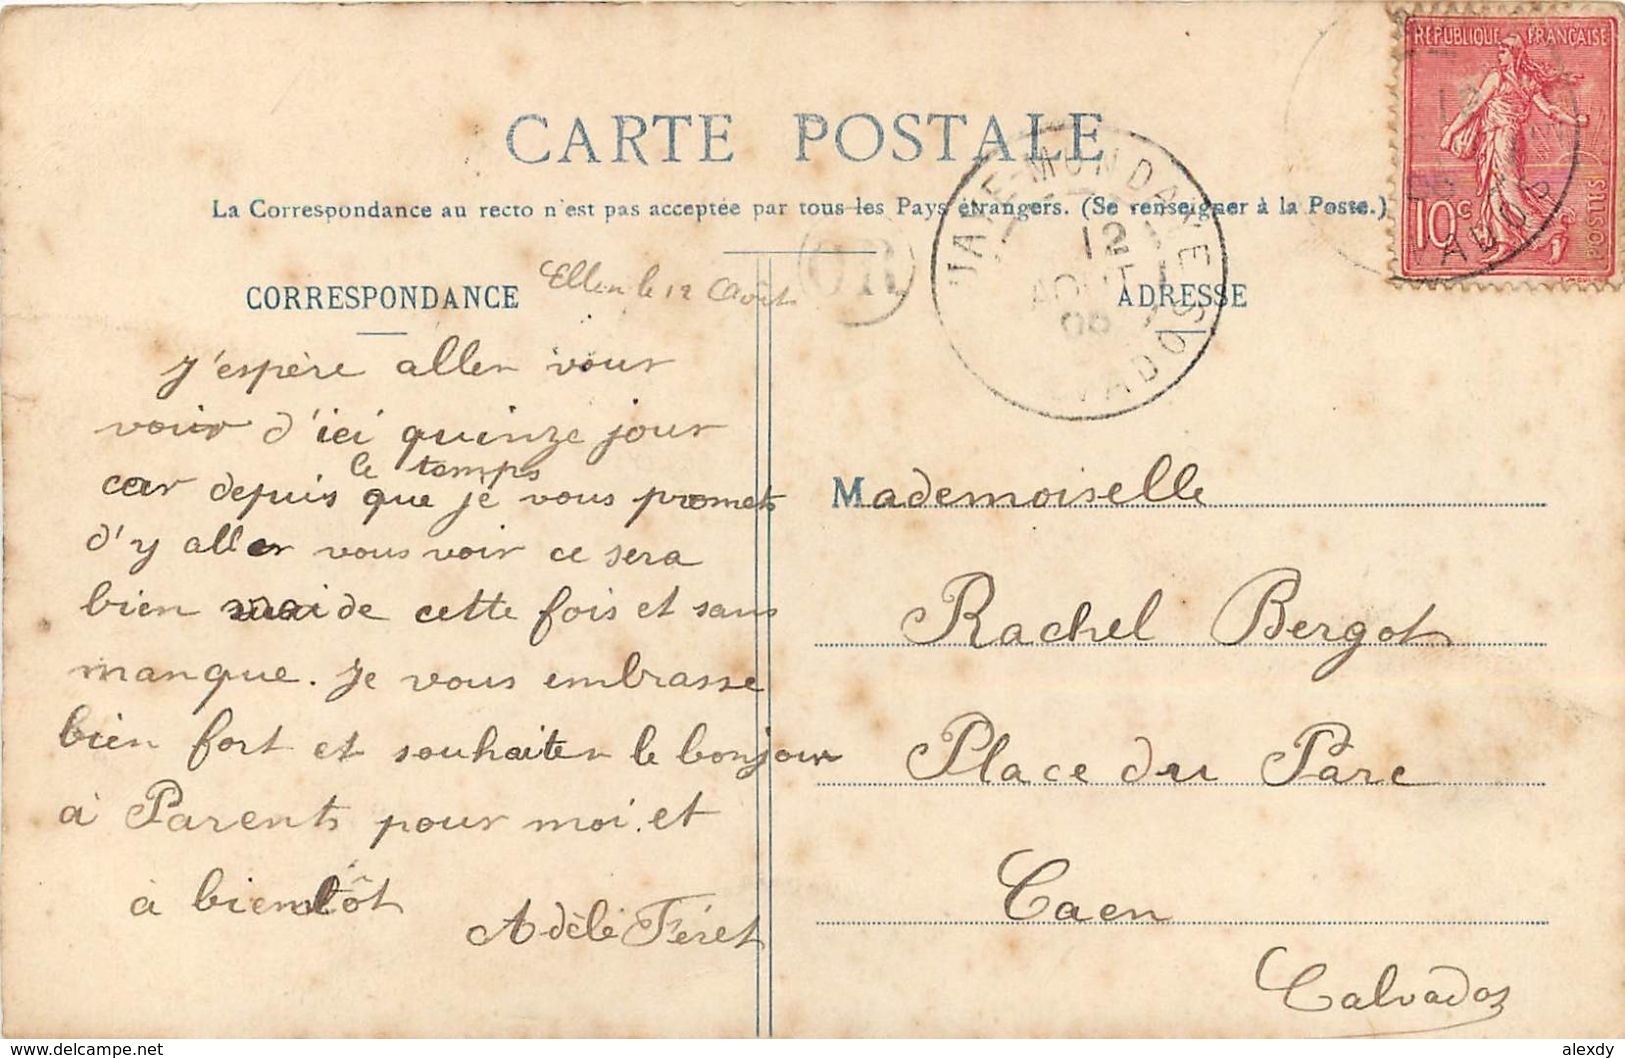 RÉPUBLIQUE FRANÇAISE
10c
CARTE POSTALE
La Correspondance au recto n'est pas acceptée par tous les Pays étrangers. (Se renseigner à la Poste.)
CORRESPONDANCE
le 12 Août
OR
12
AOUT
ADRESSE
J'espère aller vous
voir d'ici quinze jour
car depuis le temps que je vous promets
d'y aller vous voir ce sera
bien de cette fois et sans
manque. Je vous embrasse
bien fort et souhaiter le bonjour
à Parents pour moi. et
à bientôt
Adèle Féret
Mademoiselle
Rachel Bergot
Place du Parc
Caen
Calvados
delcampe.net
alexdy